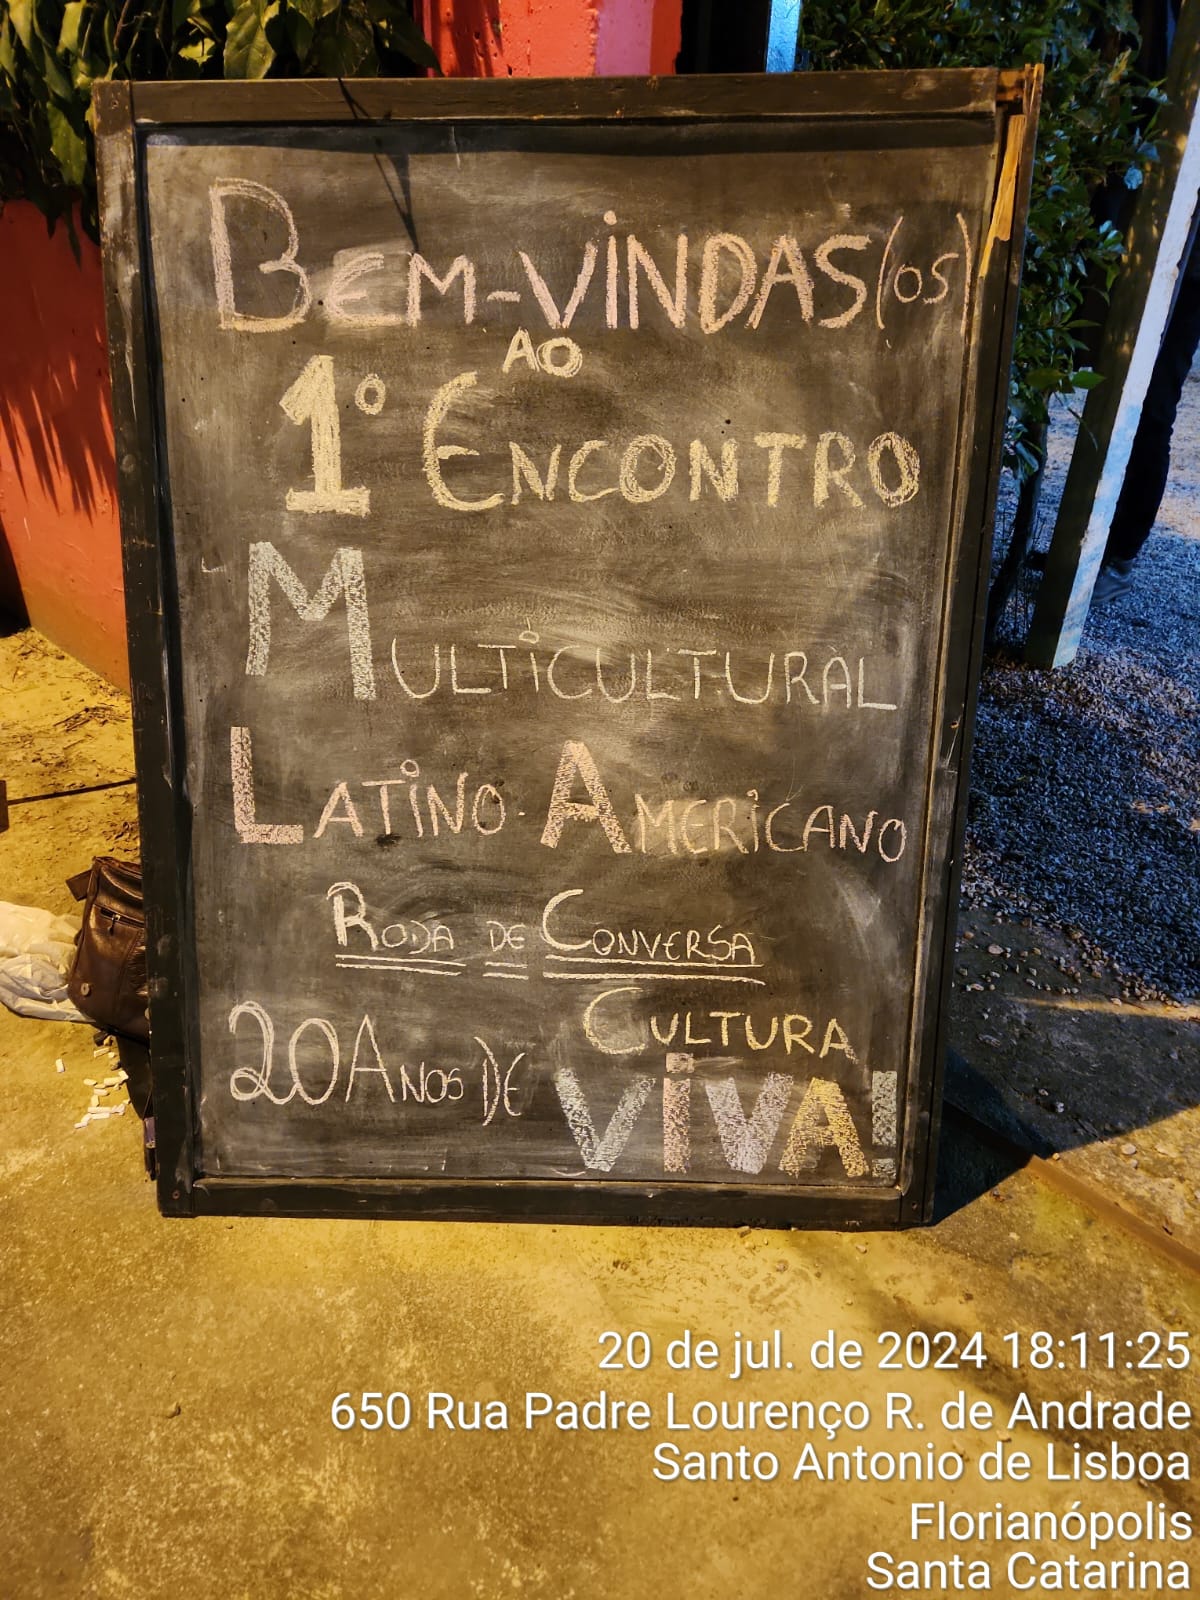 BEM-VINDAS(OS)
AO
1º ENCONTRO
MULTICULTURAL
LATINO-AMERICANO
RODA DE CONVERSA
20 ANOS DE CULTURA
VIVA!
20 de jul. de 2024 18:11:25
650 Rua Padre Lourenço R. de Andrade
Santo Antonio de Lisboa
Florianópolis
Santa Catarina